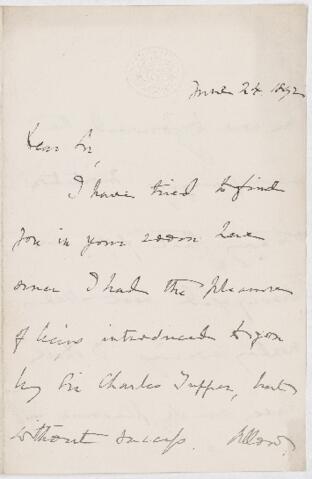 June 24. 1892
Dear Sir,
I have tried to find
you in your room here
since I had the pleasure
of being introduced to you
by Sir Charles Tupper, but
without success. Allow